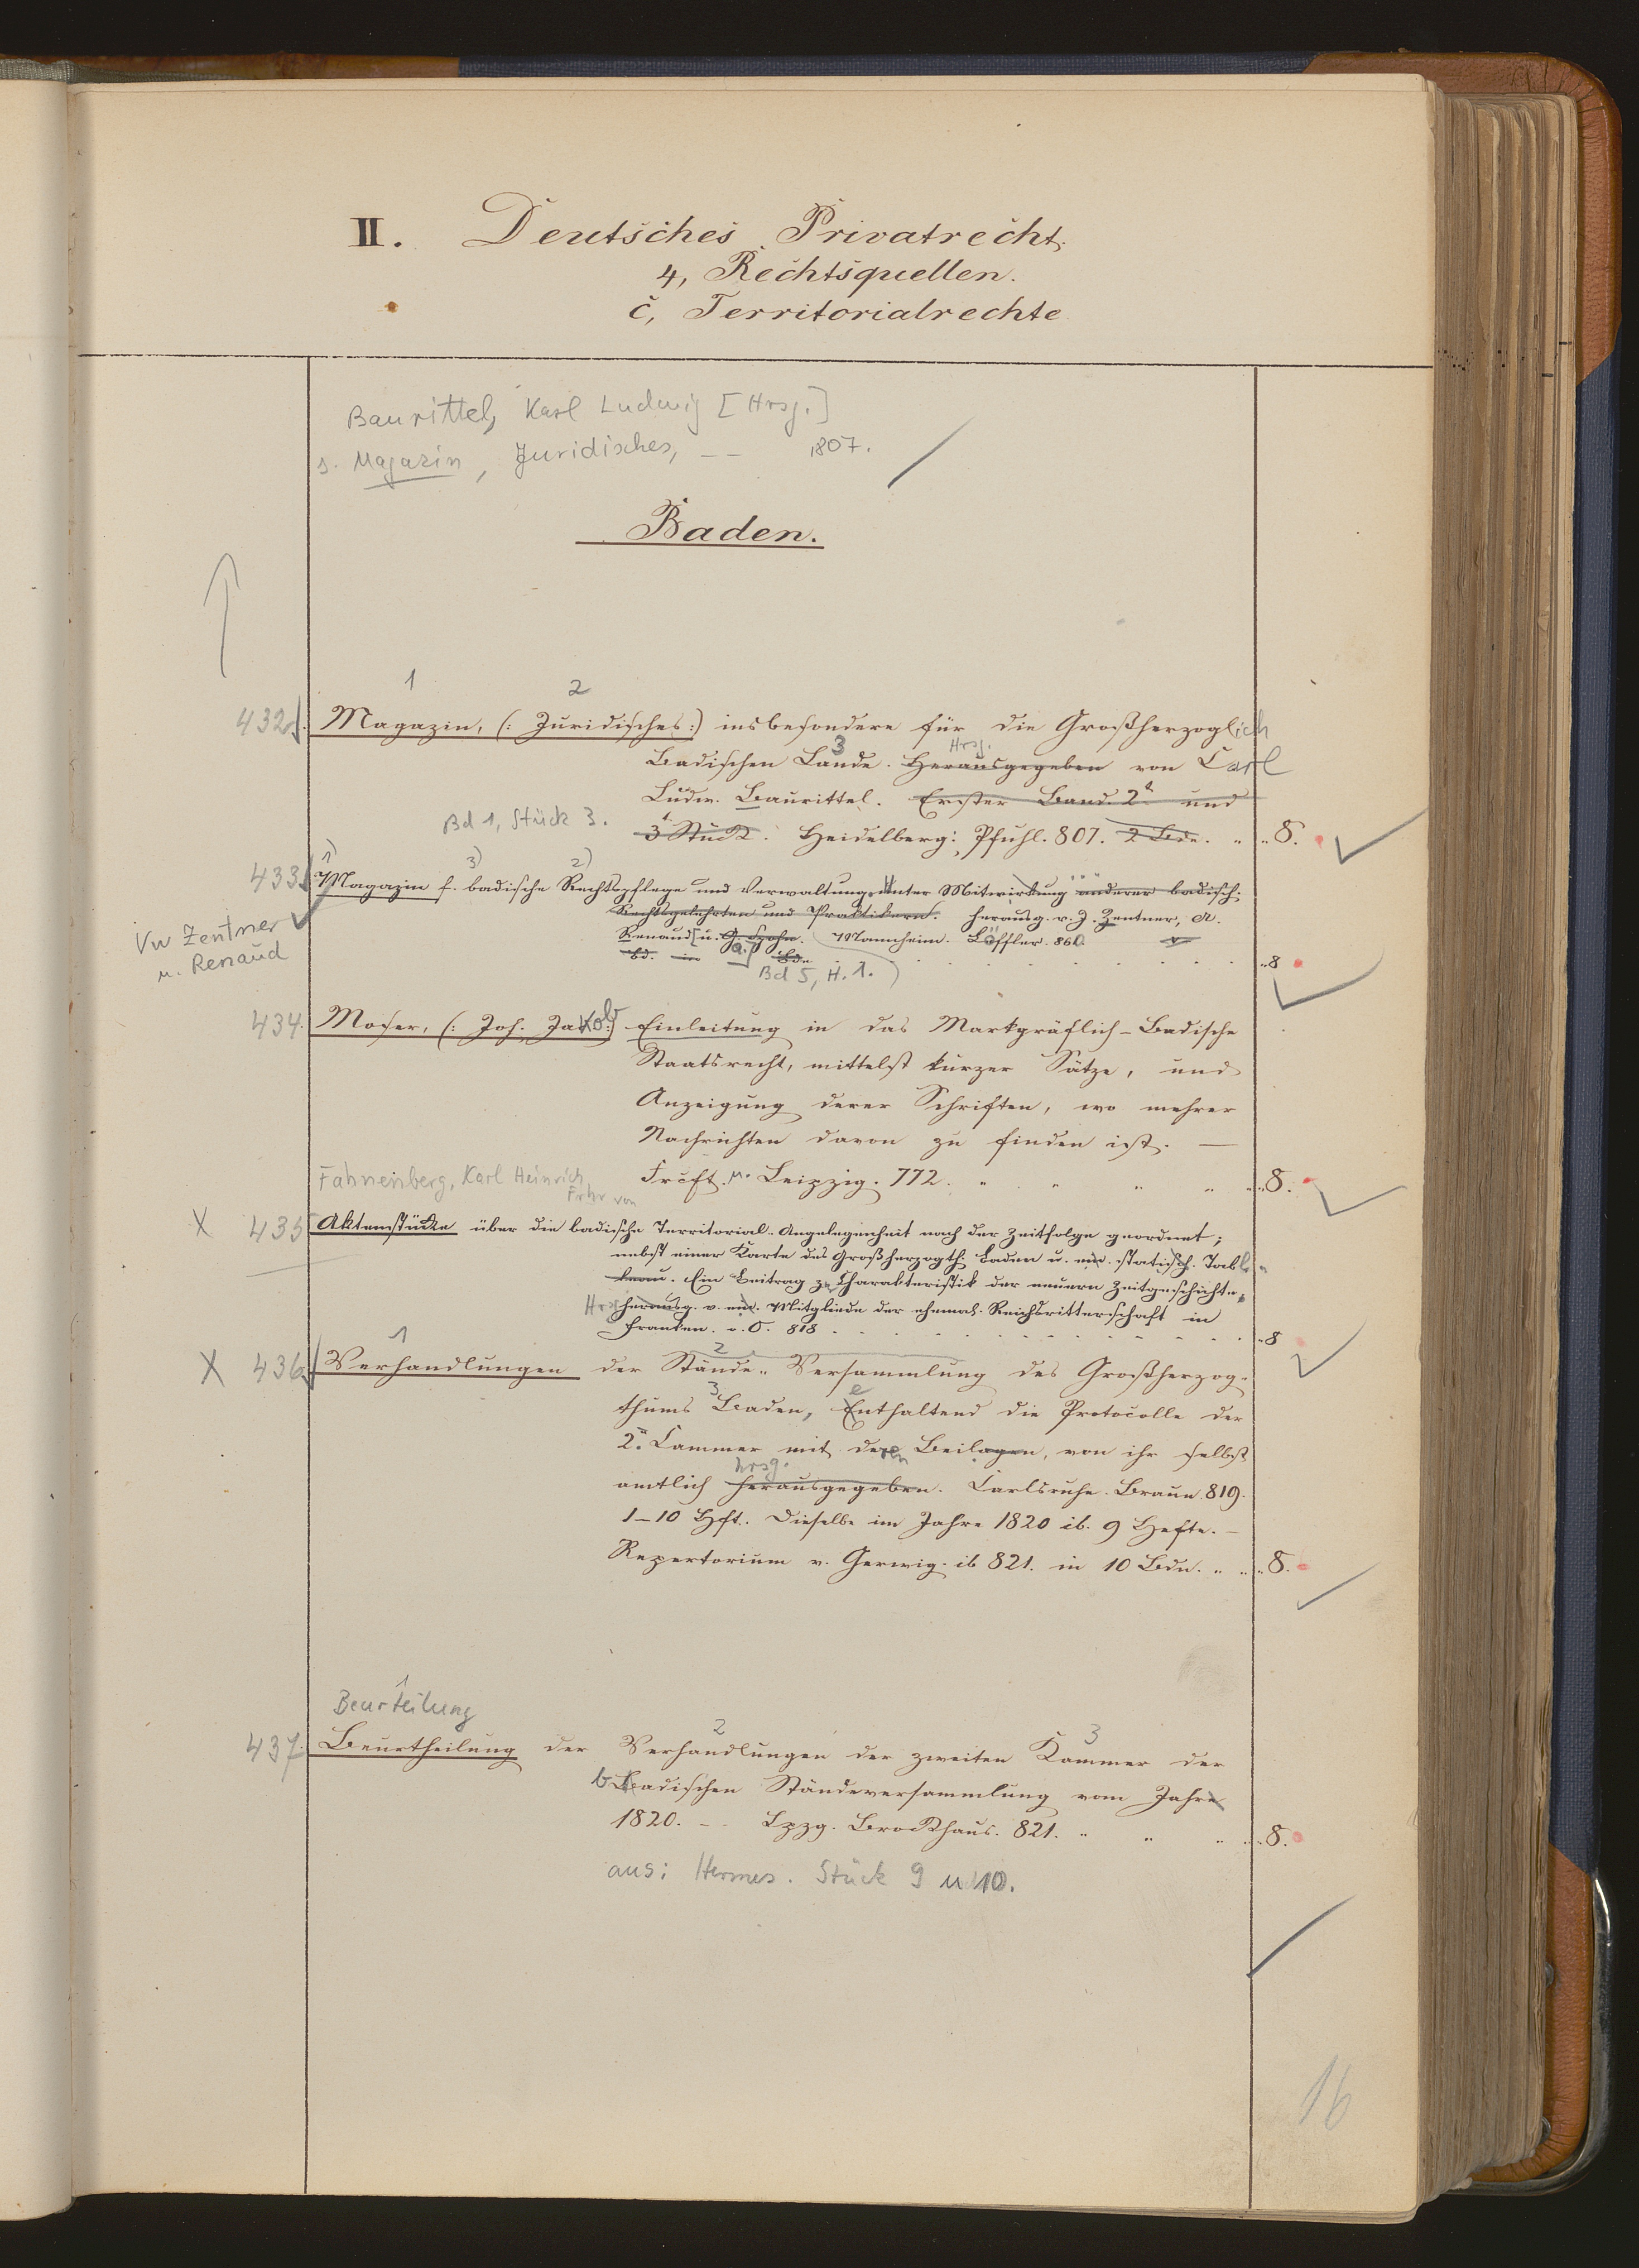 II. Deutsches Privatrecht.
4, Rechtsquellen.
c, Territorialrechte
Baurittel, Karl Ludwig [Hrsg.]
s. Magazin, Juridisches, – – 1807.
Baden.
1 2
432. Magazin, (: Juridisches :) insbesondere für die Großherzoglich
Badischen Lande. 3 Herausgegeben Hrsg. von Carl
Ludw. Baurittel. Erster Band. 2t und
Bd 1, Stück 3. 3t Stück. Heidelberg: Pfuhl. 807. 2 Bde. " " 8.
1) 3) 2)
433. Magazin f. badische Rechtspflege und Verwaltung. Unter Mitwirkung anderer badisch.
Rechtsgelehrten und Praktikern. herausg. v. J. Zentner, A.
Vw Zentner u. Renaud
Renaud [u. G. Spohn. Mannheim. Löffler. 860
Bd. in Bdn. "8
Bd 5, H. 1.
434. Moser, (: Joh. Jakob :) Einleitung in das Markgräflich-Badische
Staatsrecht, mittelst kurzer Sätze, und
Anzeigung derer Schriften, wo mehrer
Nachrichten davon zu finden ist. —
Frcft. u. Leipzig. 772. " " " " " 8.
Fahnenberg, Karl Heinrich Frhr von
X 435 Aktenstücke über die badische Territorial-Angelegenheit nach der Zeitfolge geordnet;
nebst einer Karte des Großherzogth. Baden u. ein. statistisch. Tabl
leau. Ein Beitrag z. Charakteristik der neuern Zeitgeschichte,
Hrsg herausg. v. ein. Mitgliede der ehemal. Reichsritterschaft in
Franken. o. O. 818 "8
1 2
X 436. Verhandlungen der Stände-Versammlung des Großherzog-
thums 3 Baden, Enthaltend die Protocolle der
2n Cammer mit deren Beilagen, von ihr selbst
amtlich herausgegeben hrsg. Carlsruhe. Braun. 819.
1–10 Hft. Dieselbe im Jahre 1820 ib. 9 Hefte. –
Repertorium v. Gerwig. ib 821. in 10 Bdn. " " " 8.
1
Beurteilung
2 3
437. Beurtheilung der Verhandlungen der zweiten Kammer der
b Badischen Ständeversammlung vom Jahre
1820. – Lpzg. Brockhaus. 821. " " " " " 8.
aus: Hermes. Stück 9 u 10.
16